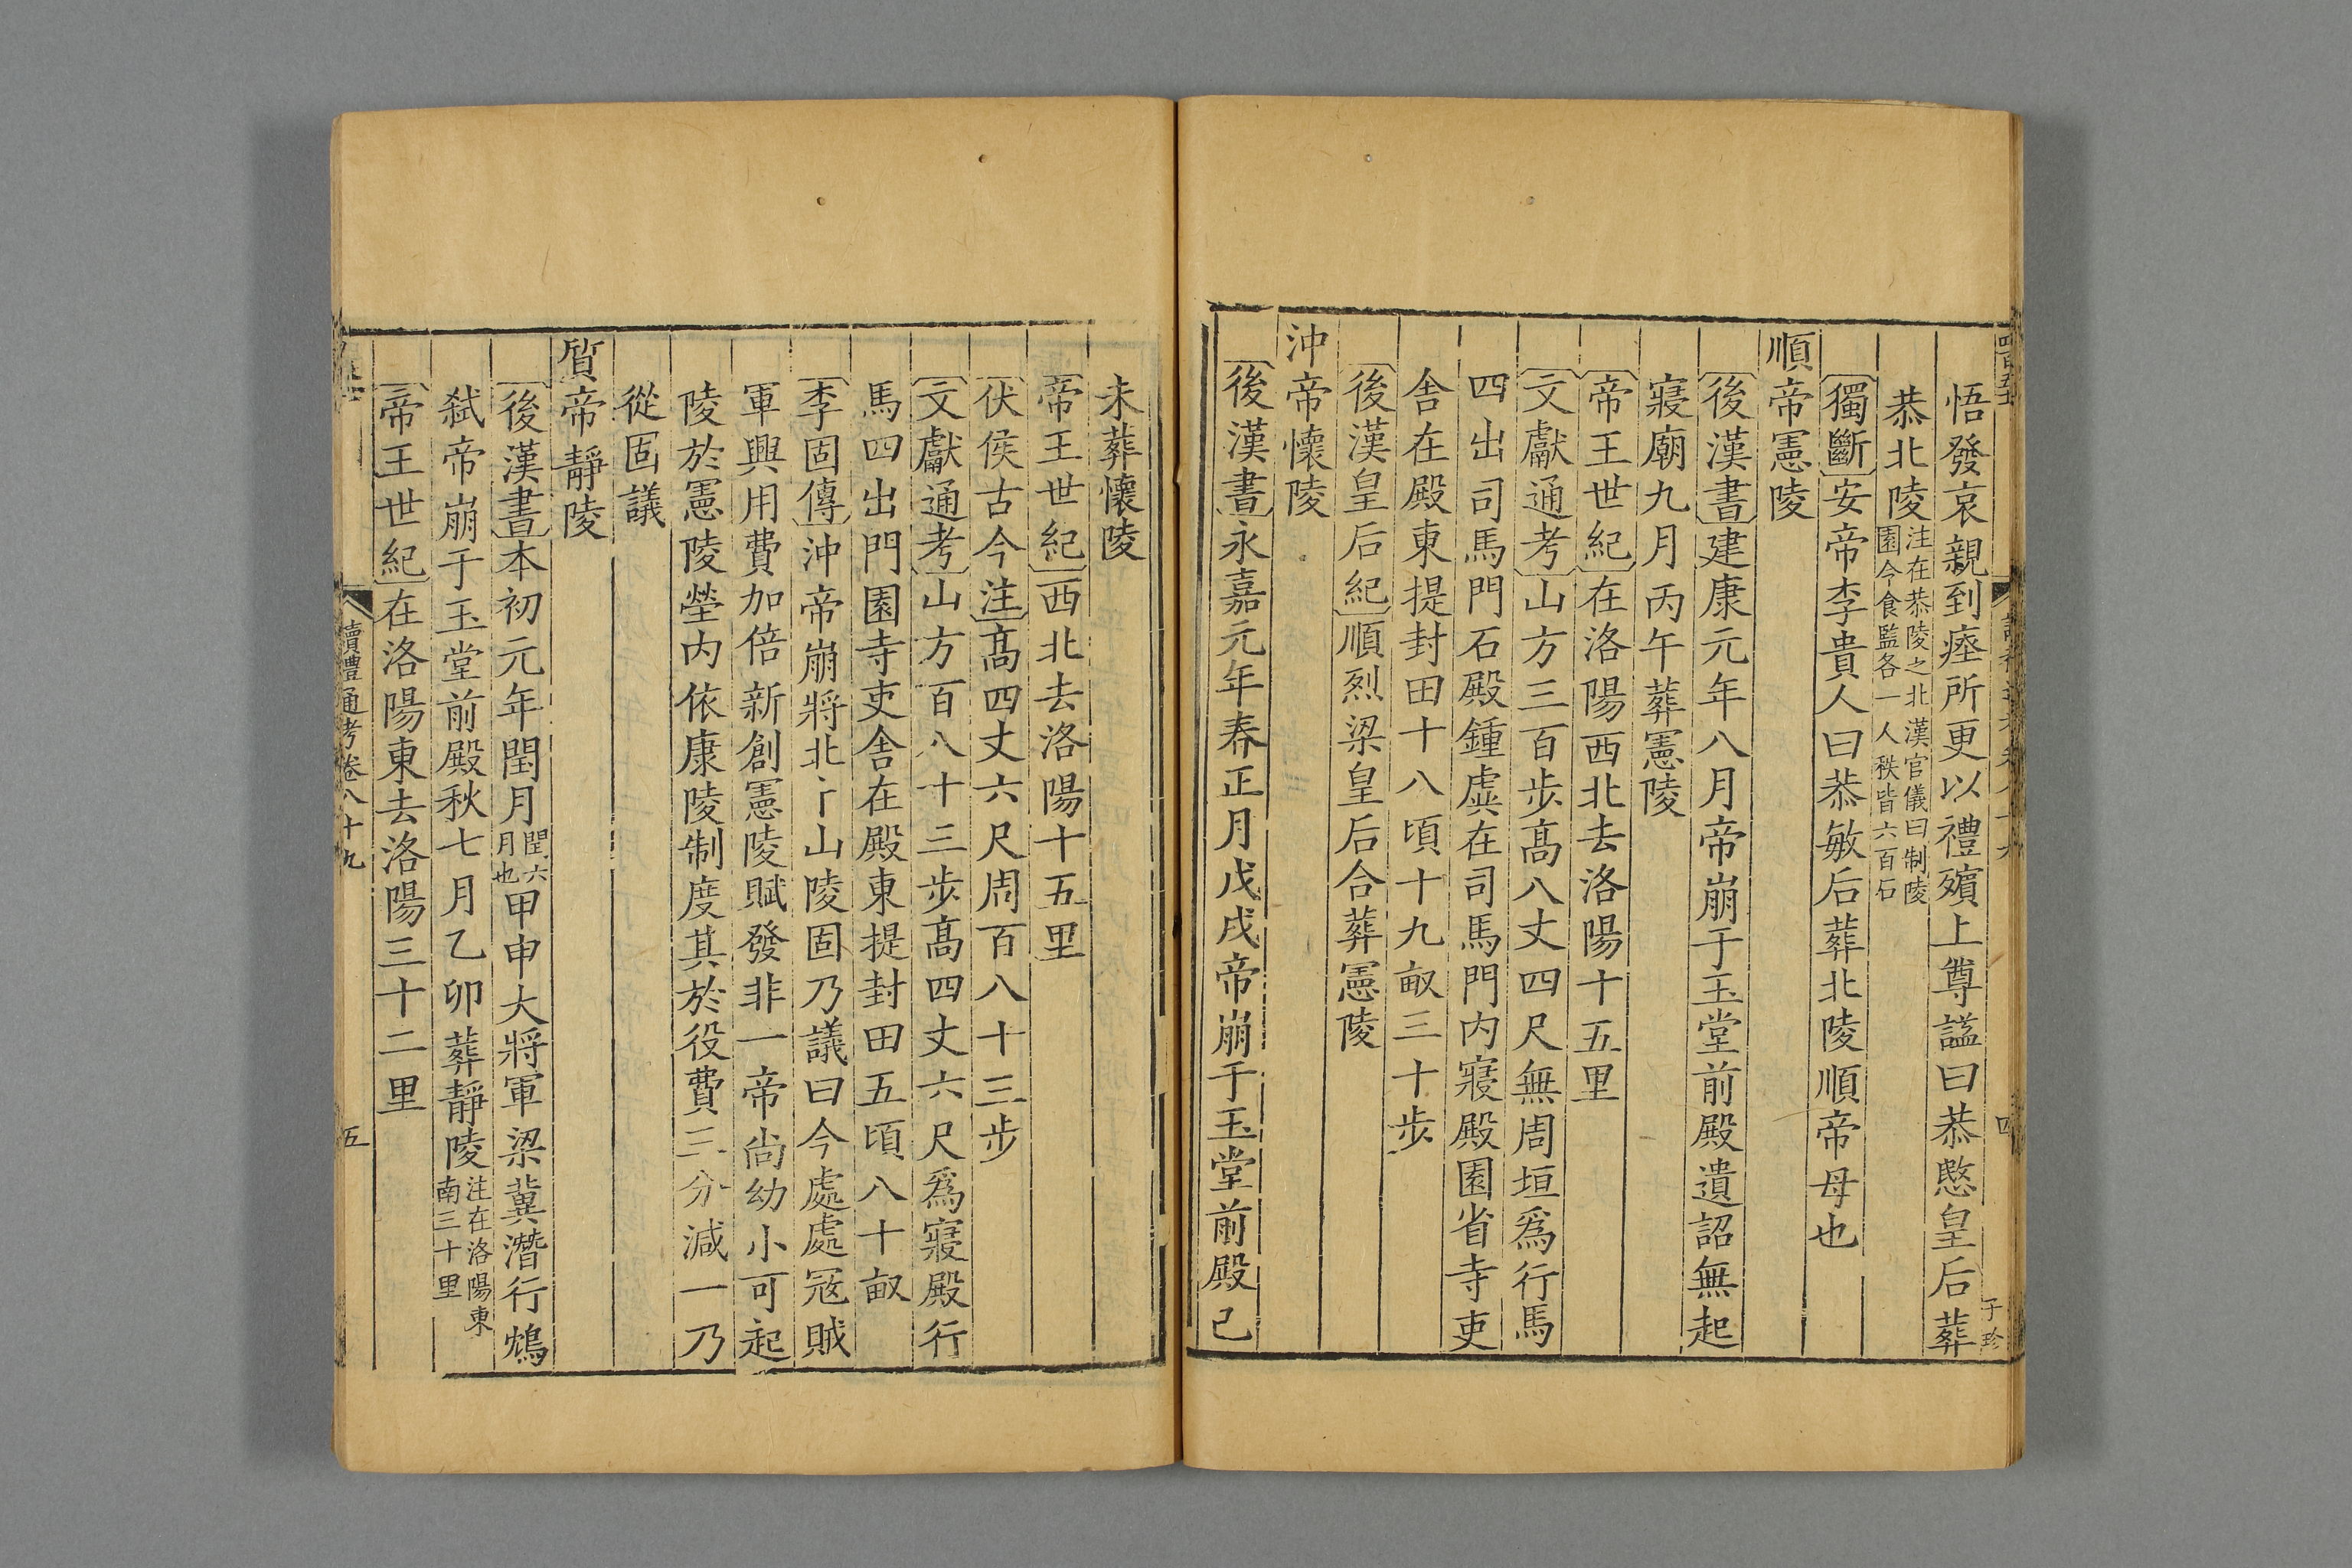 悟發哀親到瘞所更以禮殯上尊諡曰恭愍皇后葬
恭北陵注在恭陵之北漢官儀曰制陵園令食監各一人秩皆六百石
獨斷安帝李貴人曰恭敏后葬北陵順帝母也
順帝憲陵
後漢書建康元年八月帝崩于玉堂前殿遺詔無起
寢廟九月丙午葬憲陵
帝王世紀在洛陽西北去洛陽十五里
文獻通考山方三百步高八丈四尺無周垣爲行馬
四出司馬門石殿鍾虡在司馬門内寢殿園省寺吏
舍在殿東提封田十八頃十九畝三十步
後漢皇后紀順烈梁皇后合葬憲陵
沖帝懷陵
後漢書永嘉元年春正月戊戌帝崩于玉堂前殿己
未葬懷陵
帝王世紀西北去洛陽十五里
伏侯古今注高四丈六尺周百八十三步
文獻通考山方百八十三步高四丈六尺爲寢殿行
馬四出門園寺吏舍在殿東提封田五頃八十畝
李固傳沖帝崩將北卜山陵固乃議曰今處處寇賊
軍興用費加倍新創憲陵賦發非一帝尚幼小可起
陵於憲陵塋内依康陵制度其於役費三分減一乃
從固議
質帝靜陵
後漢書本初元年閏月閏六月也甲申大將軍梁冀潛行鴆
弑帝崩于玉堂前殿秋七月乙卯葬靜陵注在洛陽東南三十里
帝王世紀在洛陽東去洛陽三十二里
讀禮通考卷八十九
五